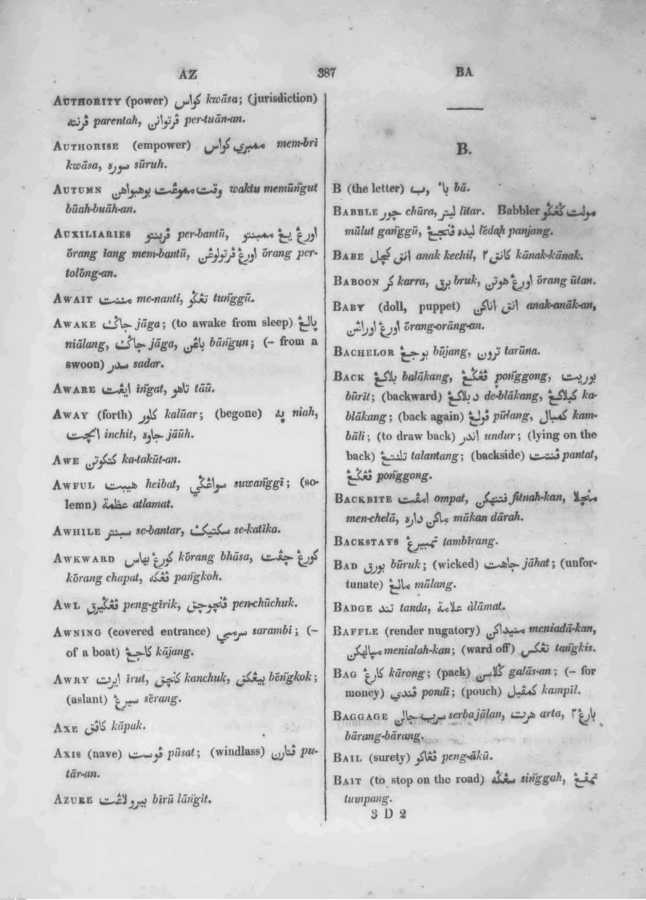 AZ 387 BA
AUTHORITY (power) كواس kwāsa; (jurisdiction)
فرنته parentah, فرتوانن per-tuān-an.
AUTHORISE (empower) ممبري كواس mem-bri
kwāsa, سوره sūruh.
AUTUMN waktu memūngut
būah-buāh-an.
AUXILIARIES فربنتو per-bantū, اورڠ يڠ ممبنتو
ōrang īang mem-bantū, اورڠ فرتولوڠن ōrang per-
tolōng-an.
AWAIT مننت me-nanti, تڠݢو tunggū.
AWAKE جاݢ jāga; (to awake from sleep)
niālang, جاݢ jāga, باڠن bāngun; (– from a
swoon) سدر sadar.
AWARE ايڠت ingat, تاهو tāū.
AWAY (forth) كلور kalūar; (begone) niah,
inchit, جاوه jāūh.
AWE كتكوتن ka-takūt-an.
AWFUL هيبت heibat, سواڠݢي suwanggī; (so-
lemn) عظمة atlamat.
AWHILE سبنتر se-bantar, سكتيك se-katīka.
AWKWARD كورڠ بهاس kōrang bhāsa, كورڠ چفت
kōrang chapat, فڠكه pangkoh.
AWL فڠݢيرق peng-gīrik, فنچوچق pen-chūchuk.
AWNING (covered entrance) سرمبي sarambi; (–
of a boat) كاجڠ kājang.
AWRY ايرت īrut, كنچق kanchuk, بيڠكق bēngkok;
(aslant) سيرڠ sērang.
AXE كافق kāpak.
AXIS (nave) فوست pūsat; (windlass) فتارن pu-
tār-an.
AZURE بيرو لاڠت bīrū lāngit.
B.
B (the letter) با، وب bā.
BABBLE چور chūra, ليتر lītar. Babbler مولت ڬڠݢو
mūlut ganggū, ليده فنجڠ lēdah panjang.
BABE انق كچل anak kechil, كانق٢ kānak-kānak.
BABOON كر karra, برق bruk, اورڠ هوتن ōrang ūtan.
BABY (doll, puppet) انق اناكن anak-anāk-an,
اورڠ اوراڠن ōrang-orāng-an.
BACHELOR بوجڠ būjang, ترون tarūna.
BACK بلاكڠ balākang, فڠݢڠ ponggong, بوريت
būrīt; (backward) د بلاكڠ de-blākang, كبلاكڠ ka-
blākang; (back again) فولڠ pūlang, كمبال kam-
bāli; (to draw back) اندر undur; (lying on the
back) تلنتڠ talantang; (backside) فنتت pantat,
فڠݢڠ ponggong.
BACKBITE امفت ompat, فتنهكن fitnah-kan, منچلا
men-chelā, ماكن داره mākan dārah.
BACKSTAYS تمبيرڠ tambīrang.
BAD بورق būruk; (wicked) جاهت jāhat; (unfor-
tunate) مالڠ mālang.
BADGE تند tanda, علامة ālāmat.
BAFFLE (render nugatory) منيداكن meniadā-kan,
menialah-kan; (ward off) تڠكس tangkis.
BAG كارڠ kārong; (pack) ݢلاسن galās-an; (– for
money) فندي pondi; (pouch) كمفيل kampil.
BAGGAGE سرب جالن serba jālan, هرت arta, بارڠ٢
bārang-bārang.
BAIL (surety) فڠاكو peng-ākū.
BAIT (to stop on the road) سڠݢه singgah, تمفڠ
tumpang.
3 D 2